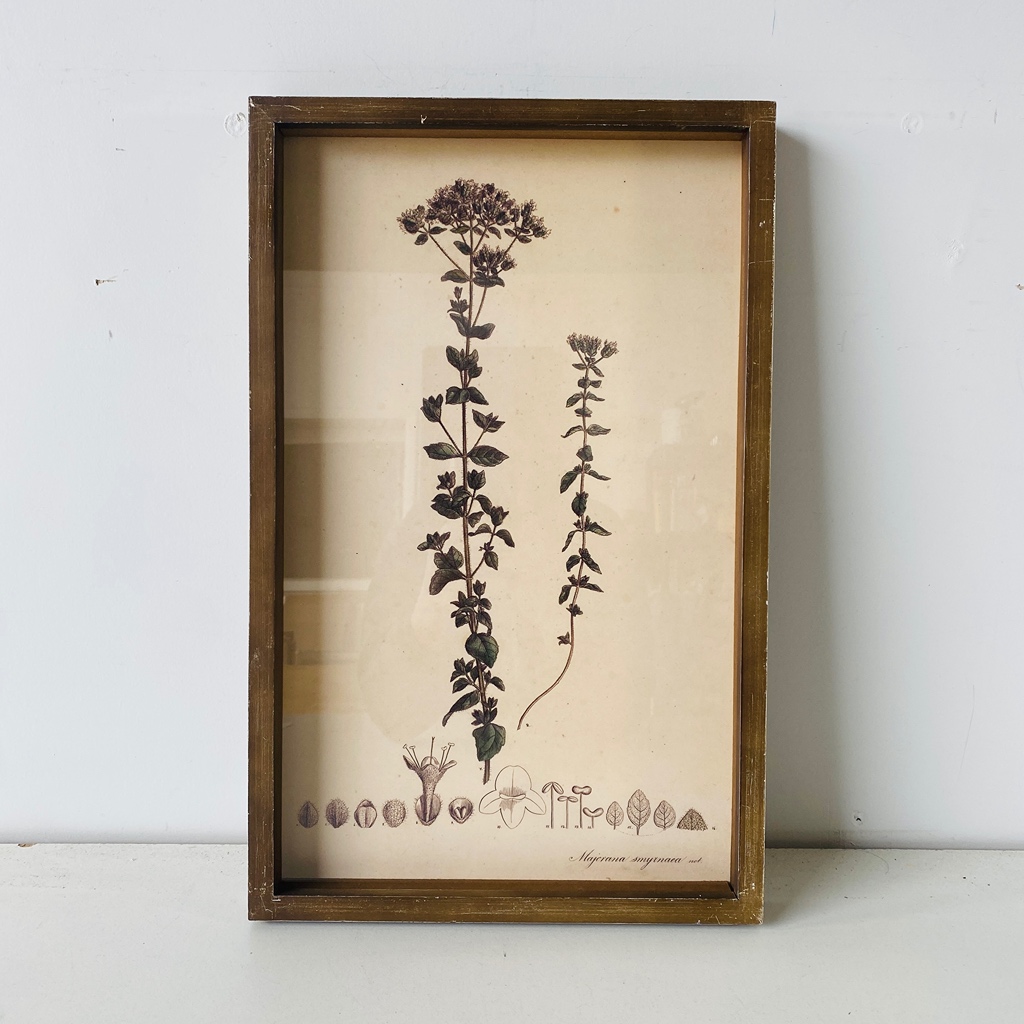 Majorana smyrnaea